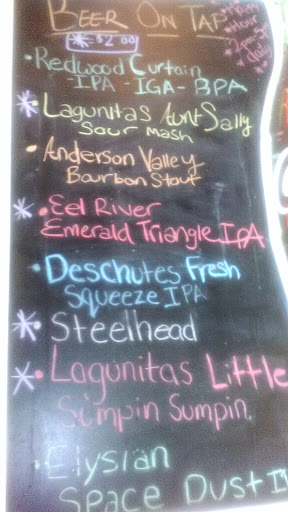 BEER ON TAP
* $2.00
Happy
Hour
• Redwood Curtain
IPA - IGA - BPA
* Lagunitas Aunt Sally
Sour Mash
• Anderson Valley
Bourbon Stout
* • Eel River
Emerald Triangle IPA
• Deschutes Fresh
Squeeze IPA
* • Steelhead
* • Lagunitas Little
Sumpin Sumpin
• Elysian
Space Dust I